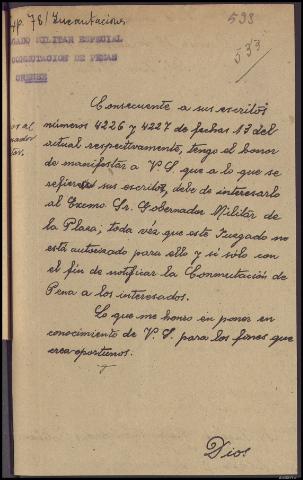 Ap. 78/Incautacions
593
533
GADO MILITAR ESPECIAL
CONMUTACION DE PENAS
ORENSE
os al
nador
tar.
Consecuente a sus escritos
números 4226 y 4227 de fechas 13 del
actual respectivamente, tengo el honor
de manifestar a V.S. que a lo que se
refieren sus escritos, debe de interesarlo
al Excmo Sr. Gobernador Militar de
la Plaza; toda vez que este Juzgado no
está autorizado para ello y si sólo con
el fin de notificar la Conmutación de
Pena a los interesados.
Lo que me honro en poner en
conocimiento de V.S. para los fines que
crea oportunos.
Dios